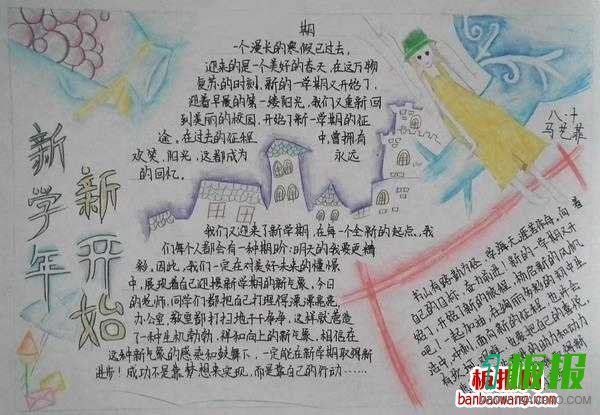 新学年
新开始
期
一个漫长的寒假已过去,
迎来的是一个美好的春天,在这万物
复苏的时刻,新的一学期又开始了,
迎着早晨的第一缕阳光,我们又重新回
到美丽的校园,开始了新一学期的征
途,在过去的征程中,曾拥有
欢笑,阳光,这都成为永远
的回忆。
我们又迎来了新学期,在每一个全新的起点,我
们每个人都会有一种期盼:明天的我要更精
彩。因此,我们一定在对美好未来的憧憬
中,展现着自己迎接新学期的新气象,今日
的老师,同学们都把自己打理得漂漂亮亮,
办公室,教室都打扫地干干净净,这样就营造
了一种生机勃勃,祥和向上的新气象,相信在
这种新气象的感染和鼓舞下,一定能在新学期取得新
进步!成功不是靠梦想来实现,而是靠自己的行动……
八、十
马艺菲
书山有路勤为径,学海无涯苦作舟,向着
自己的目标,奋力前进!新的一学期又开
始了,开始新的旅程,扬启新的风帆
吧!一起加油,在
板报网
banbaowang.com